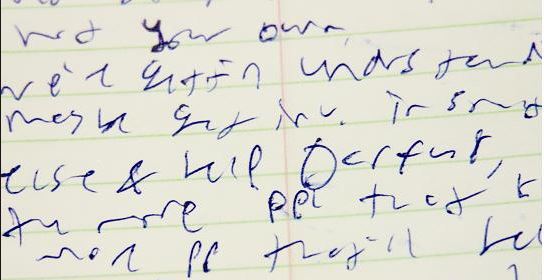 not your own
we're gettin understand
maybe get inv. in smt
else & help Darfur,
the more ppl that k
more pp they'll hel